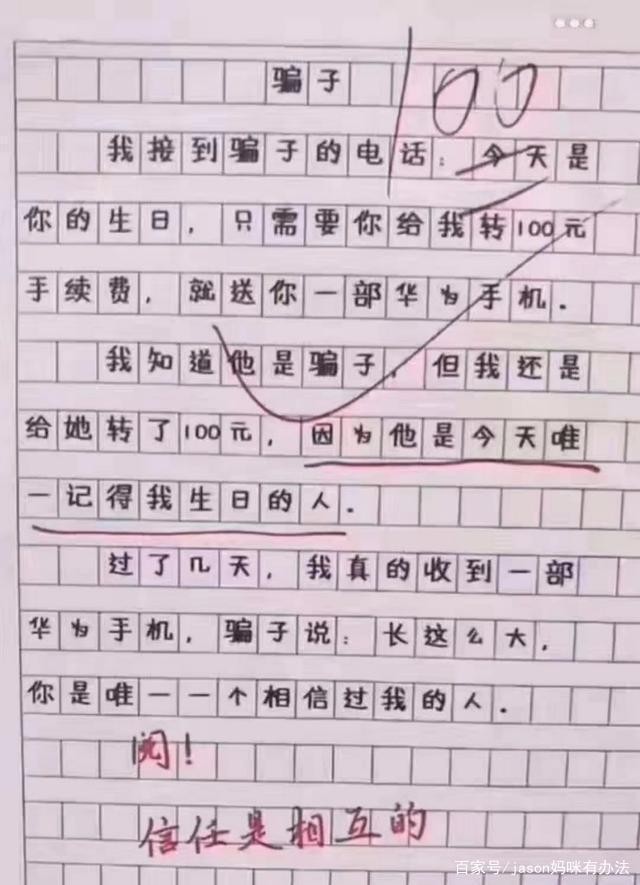 骗子
100
我接到骗子的电话：今天是
你的生日，只需要你给我转100元
手续费，就送你一部华为手机．
我知道他是骗子，但我还是
给她转了100元，因为他是今天唯
一记得我生日的人．
过了几天，我真的收到一部
华为手机，骗子说：长这么大，
你是唯一一个相信过我的人．
阅！
信任是相互的
百家号/jason妈咪有办法